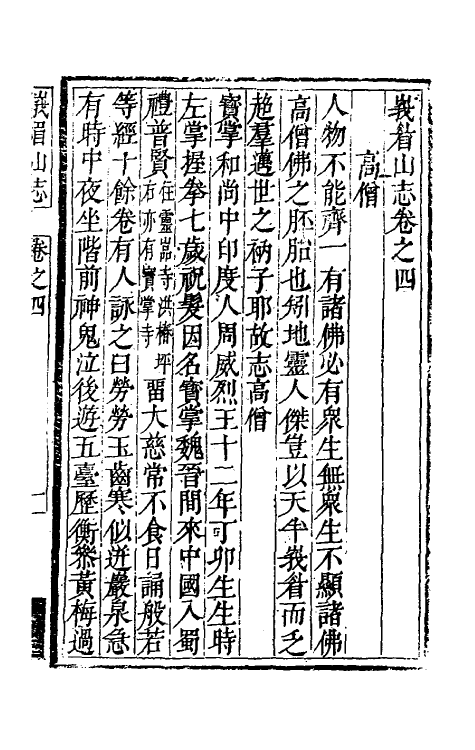 峩眉山志卷之四
高僧
人物不能齊一有諸佛必有衆生無衆生不顯諸佛
高僧佛之胚胎也矧地靈人傑豈以天半峩眉而乏
超羣邁世之衲子耶故志高僧
寶掌和尚中印度人周威烈王十二年丁卯生生時
左掌握拳七歲祝髮因名寶掌魏晉間來中國入蜀
禮普賢在靈嵓寺洪椿坪
右亦有寶掌寺留大慈常不食日誦般若
等經十餘卷有人詠之曰勞勞玉齒寒似迸巖泉急
有時中夜坐階前神鬼泣後遊五臺歷衡黃梅過
峩眉山志
卷之四
一